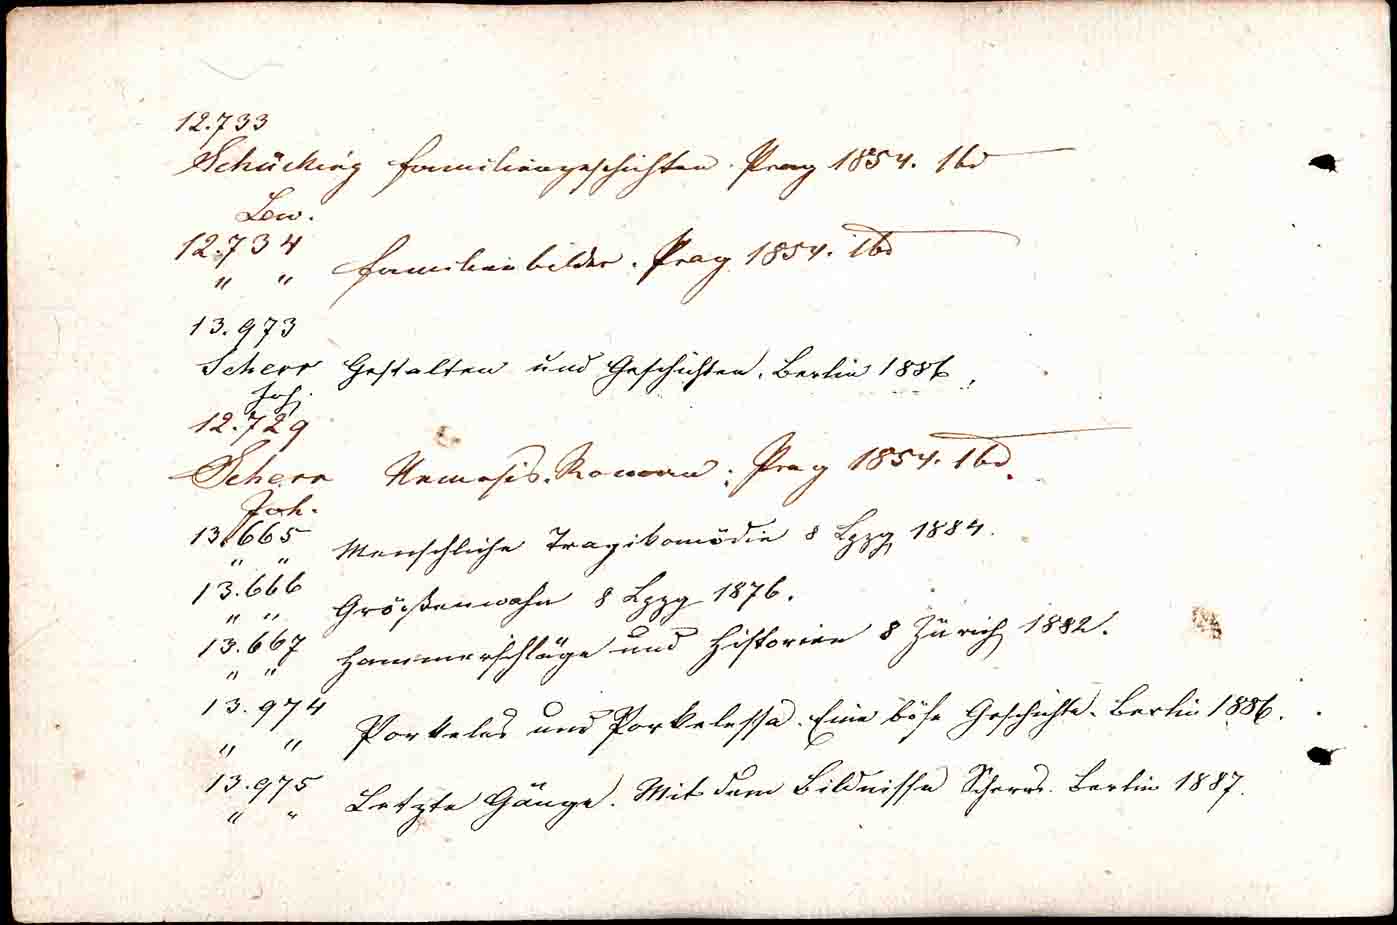 12.733
Schücking Familiengeschichten. Prag 1854. 1bd
Lew.
12.734
" " Familienbilder. Prag 1854. 1bd
13.973
Scherr Gestalten und Geschichten. Berlin 1886.
Joh.
12.729
Scherr Nemesis. Roman. Prag 1854. 1bd.
Joh.
13.665
" " Menschliche Tragikomödie 8 Lpzg 1884.
13.666
" " Größenwahn 8 Lpzg 1876.
13.667
" " Hammerschläge und Historien 8 Zürich 1882.
13.974
" " Porkeles und Porkelessa. Eine böse Geschichte. Berlin 1886.
13.975
" " Letzte Gänge. Mit dem Bildnisse Scherrs. Berlin 1887.